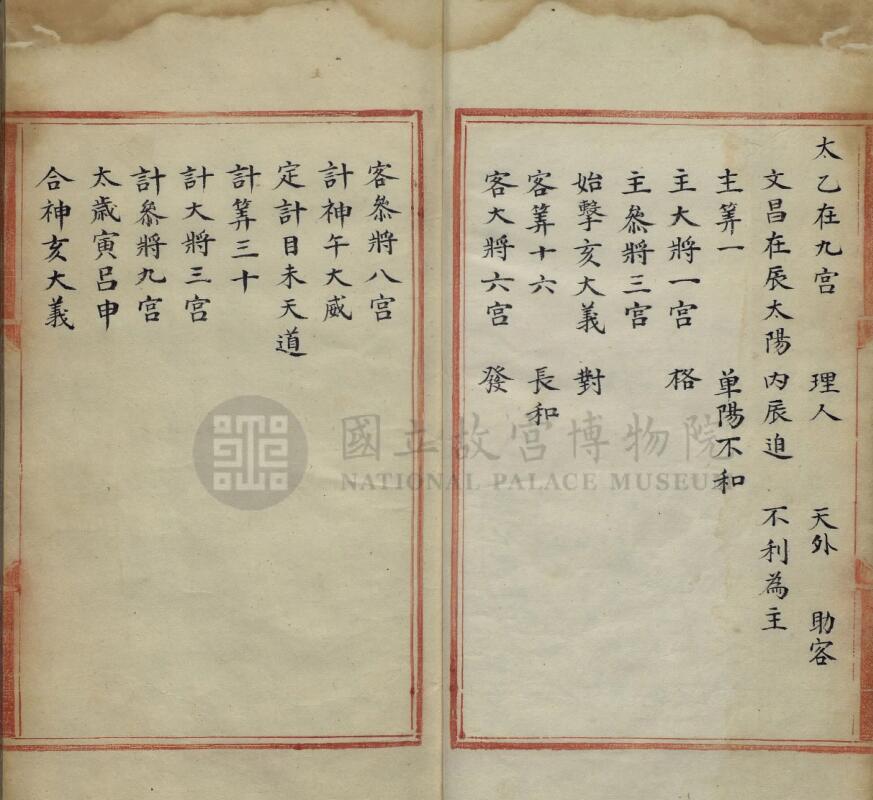 太乙在九宫 理人 天外 助客
文昌在辰太陽 内辰迫 不利為主
主筭一 单陽不和
主大將一宫 格
主叅將三宫
始擊亥大義 對
客筭十六 長和
客大將六宫 發
客叅將八宫
計神午大威
定計目未天道
計筭三十
計大將三宫
計叅將九宫
太歲寅呂申
合神亥大義
國立故宫博物院
NATIONAL PALACE MUSEUM